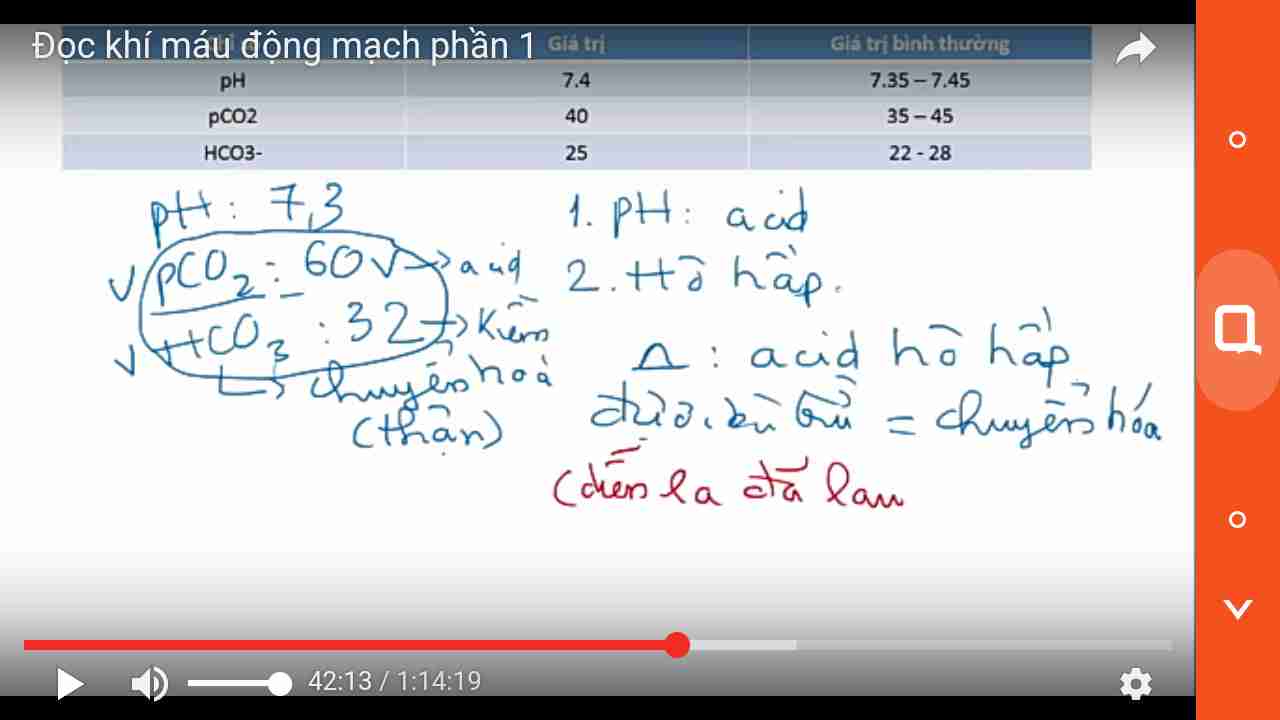 Đọc khí máu động mạch phần 1
Giá trị
Giá trị bình thường
pH 7.4 7.35 – 7.45
pCO2 40 35 – 45
HCO3- 25 22 - 28
pH: 7,3
pCO2: 60 → acid
HCO3: 32 → Kiềm
chuyển hoá
(thận)
1. pH: acid
2. Hô hấp.
Δ: acid hô hấp
được bù trừ = chuyển hóa
(diễn ra đã lâu
42:13 / 1:14:19